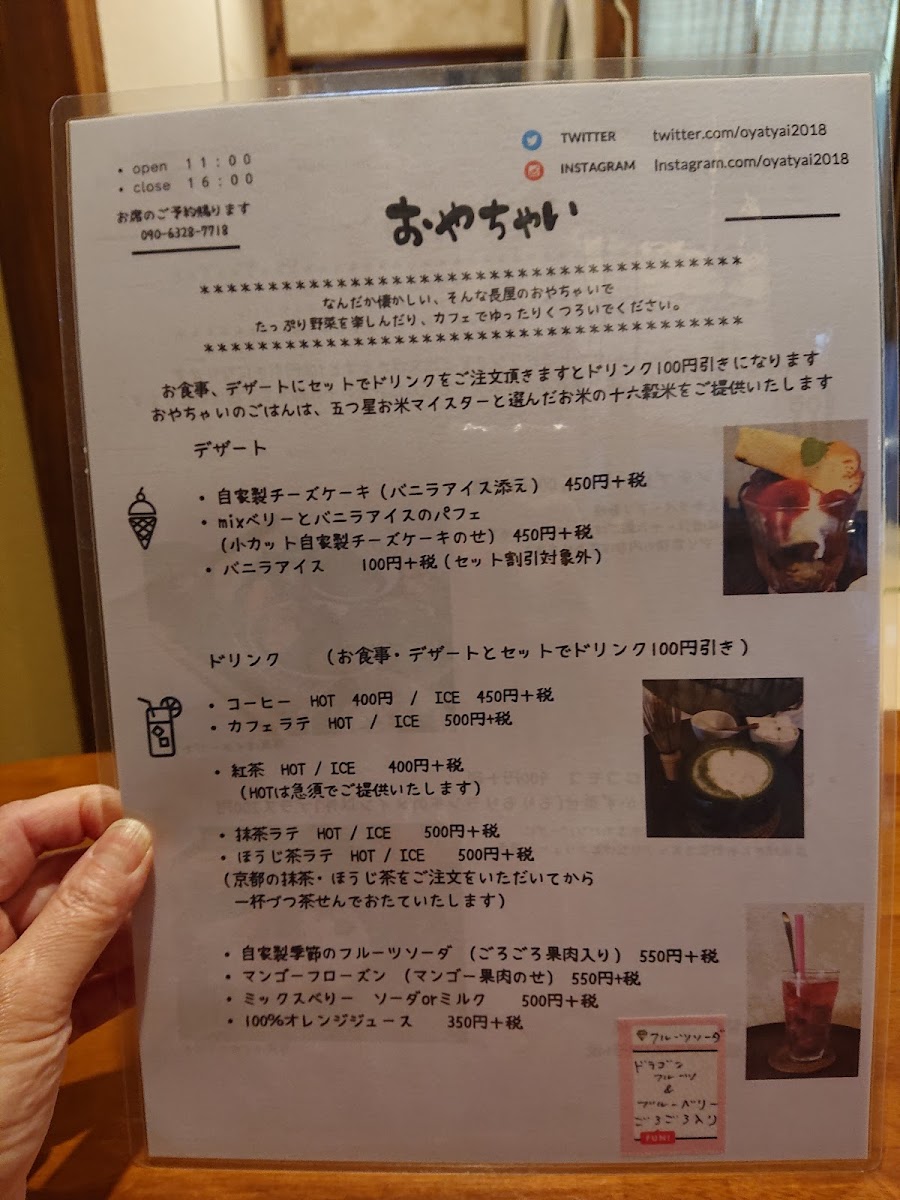 • open 11:00
• close 16:00
お席のご予約賜ります
090-6328-7718
TWITTER twitter.com/oyatyai2018
INSTAGRAM Instagram.com/oyatyai2018
おやちゃい
************************************
なんだか懐かしい、そんな長屋のおやちゃいで
たっぷり野菜を楽しんだり、カフェでゆったりくつろいでください。
************************************
お食事、デザートにセットでドリンクをご注文頂きますとドリンク100円引きになります
おやちゃいのごはんは、五つ星お米マイスターと選んだお米の十六穀米をご提供いたします
デザート
• 自家製チーズケーキ(バニラアイス添え) 450円+税
• mixベリーとバニラアイスのパフェ
(小カット自家製チーズケーキのせ) 450円+税
• バニラアイス 100円+税(セット割引対象外)
ドリンク (お食事・デザートとセットでドリンク100円引き)
• コーヒー HOT 400円 / ICE 450円+税
• カフェラテ HOT / ICE 500円+税
• 紅茶 HOT / ICE 400円+税
(HOTは急須でご提供いたします)
• 抹茶ラテ HOT / ICE 500円+税
• ほうじ茶ラテ HOT / ICE 500円+税
(京都の抹茶・ほうじ茶をご注文をいただいてから
一杯づつ茶せんでおたていたします)
• 自家製季節のフルーツソーダ (ごろごろ果肉入り) 550円+税
• マンゴーフローズン (マンゴー果肉のせ) 550円+税
• ミックスベリー ソーダorミルク 500円+税
• 100%オレンジジュース 350円+税
フルーツソーダ
ドラゴン
フルーツ
&
ブルーベリー
ごろごろ入り
FUN!